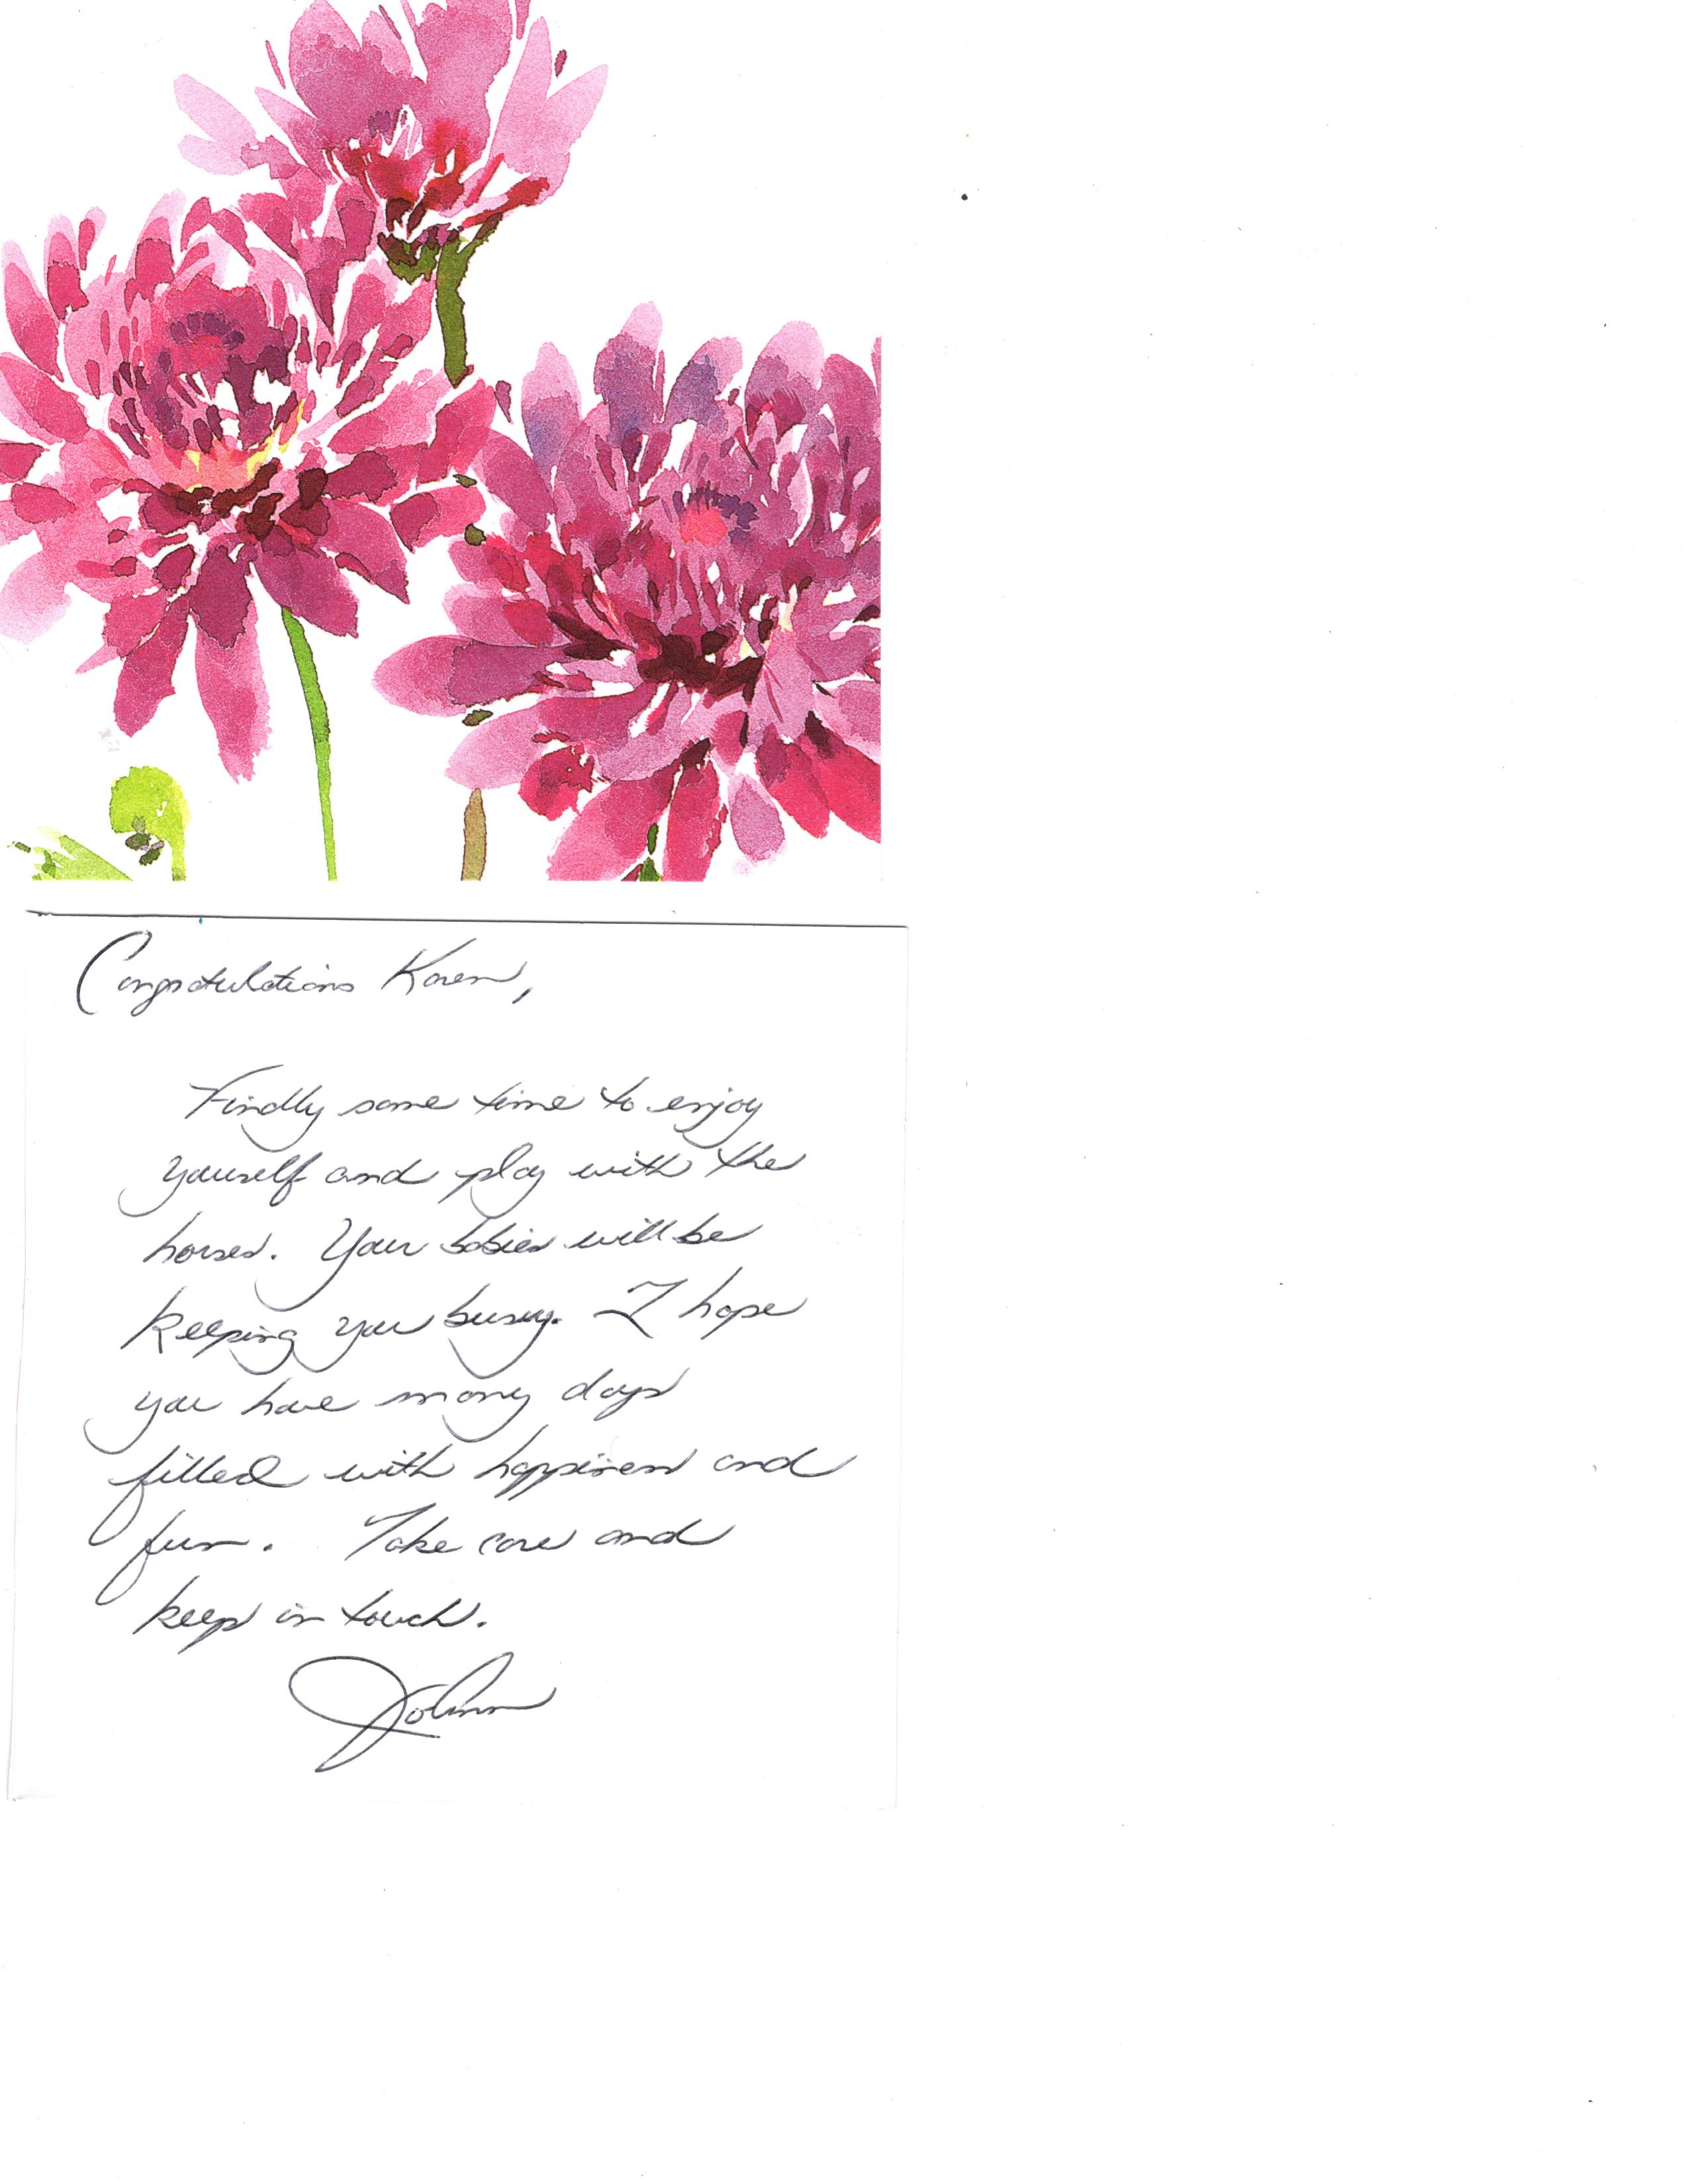 Congratulations Karen,
Finally some time to enjoy
yourself and play with the
horses. Your babies will be
keeping you busy. I hope
you have many days
filled with happiness and
fun. Take care and
keep in touch.